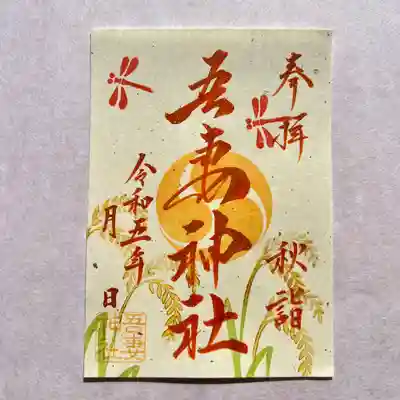 奉拝
秋詣
吾妻神社
令和五年
月
日
吾妻
神社